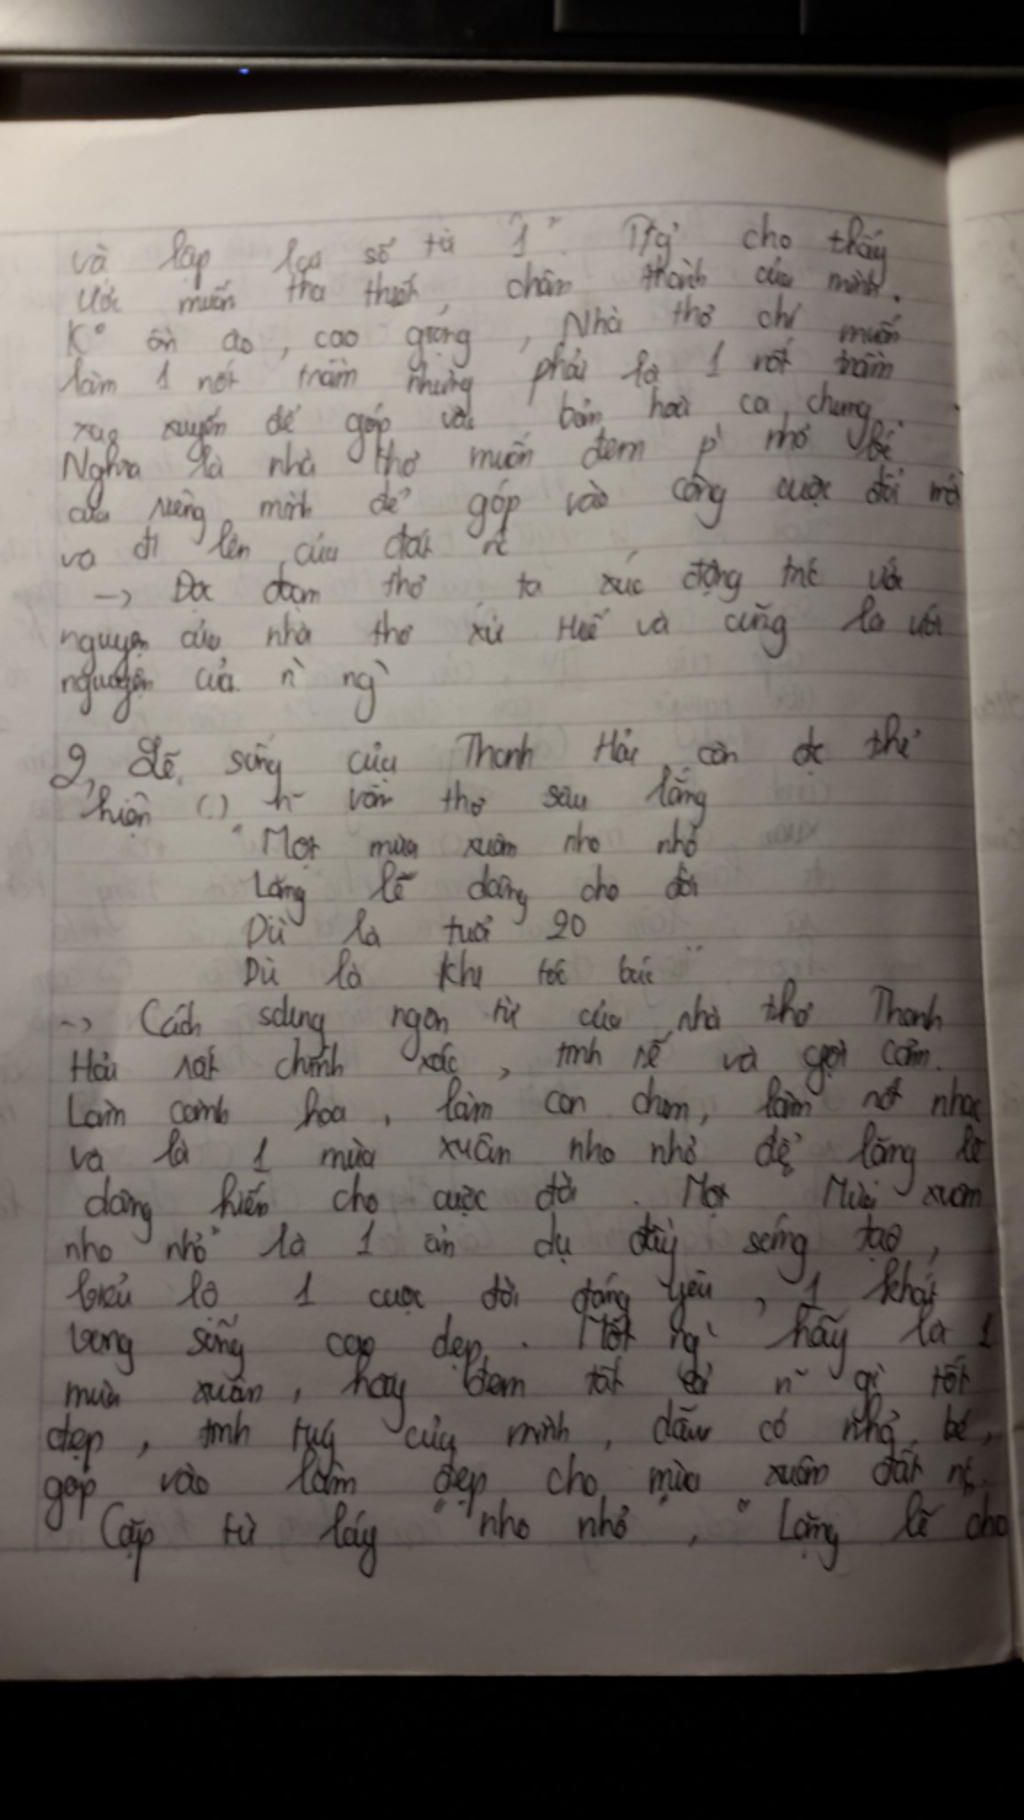 và lặp lại số từ "1". T/g' cho thấy
ước muốn tha thiết, chân thành của mình.
K° ồn ào, cao giọng, Nhà thơ chỉ muốn
làm 1 nốt trầm nhưng phải là 1 nốt trầm
xao xuyến để góp vào bản hoà ca chung.
Nghĩa là nhà thơ muốn đem p` nhỏ bé
của riêng mình để góp vào công cuộc đổi mới
và đi lên của đất nc
-> Đọc đoạn thơ ta xúc động trc ước
nguyện của nhà thơ xứ Huế và cũng là ước
nguyện của n` ng`
2, Lẽ sống của Thanh Hải còn đc thể
hiện () n~ vần thơ sâu lắng
"Một mùa xuân nho nhỏ
Lặng lẽ dâng cho đời
Dù là tuổi 20
Dù là khi tóc bạc"
-> Cách sdụng ngôn từ của nhà thơ Thanh
Hải rất chính xác, tinh tế và gợi cảm.
Làm cành hoa, làm con chim, làm nốt nhạc
và là 1 mùa xuân nho nhỏ để lặng lẽ
dâng hiến cho cuộc đời. Một Mùa xuân
nho nhỏ" là 1 ẩn dụ đầy sáng tạo,
biểu lộ 1 cuộc đời đáng yêu, 1 khát
vọng sống cao đẹp. Mỗi ng` hãy là 1
mùa xuân, hãy đem tất cả n~ gì tốt
đẹp, tinh tuý của mình, dẫu có nhỏ bé,
góp vào làm đẹp cho mùa xuân đất nc.
Cặp từ láy "nho nhỏ", "Lặng lẽ cho